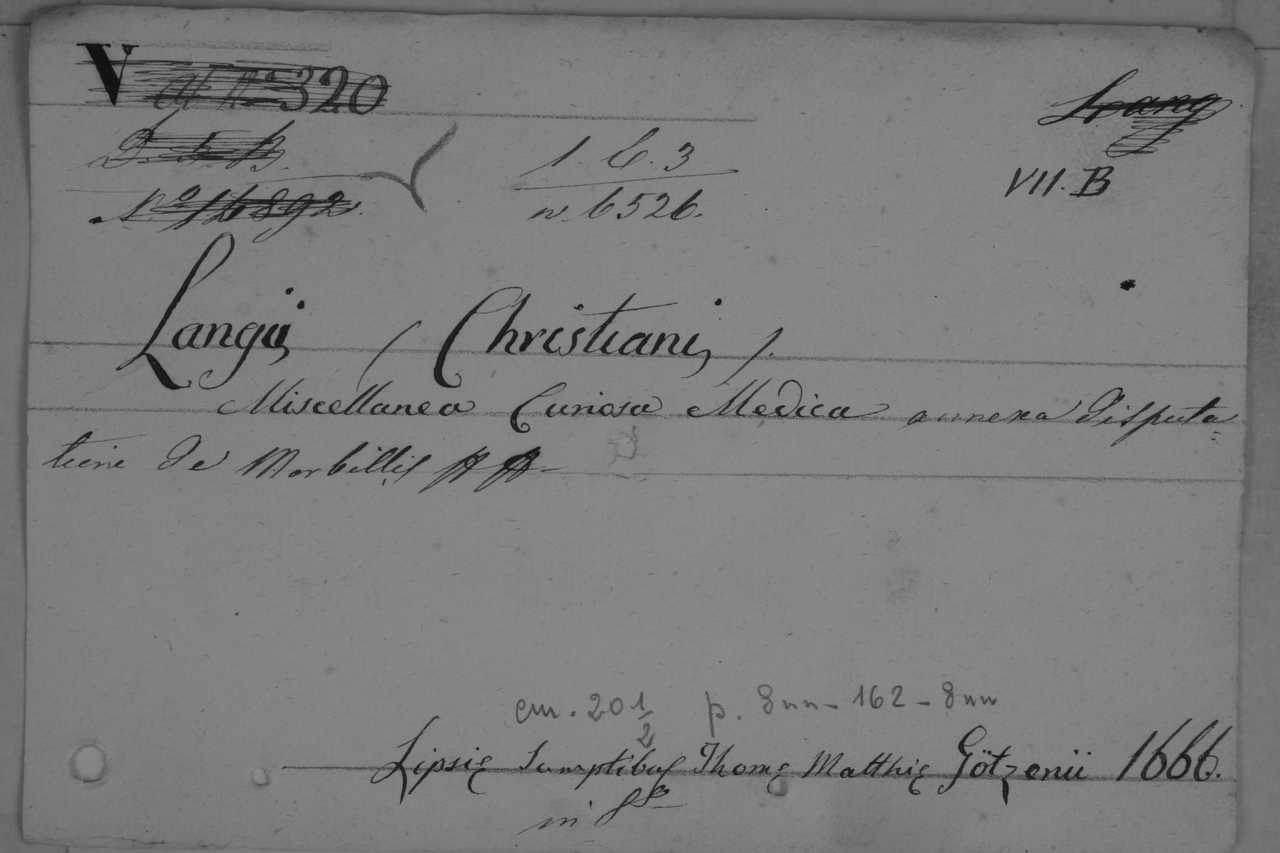 V 320
Lang
1. C. 3
VII. B
N.º 16892.
n. 6526.
Langii (Christiani).
Miscellanea Curiosa Medica annexa Disputa=
tione de Morbillis
cm. 20 1/2 p. 8nn - 162 - 8nn
Lipsię Sumptibus Thomę Matthię Götzenii 1666.
in 8º